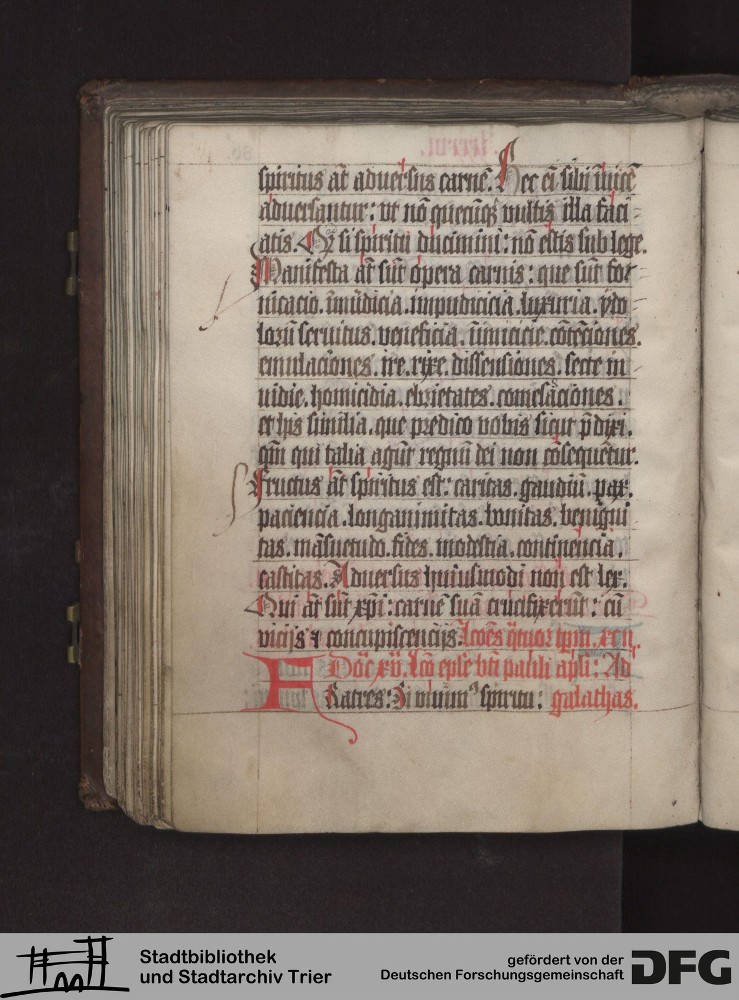 spiritus aūt adversus carnē. Hec eī sibi īvicē
adversantur: vt nō quecūqȝ vultis illa faci-
atis. Qȝ si spiritu ducimini: nō estis sub lege.
Manifesta aūt sūt opera carnis: que sūt for-
nicacio. īmūdicia. impudicicia. luxuria. ydo-
lorū servitus. veneficia. inimicicie. cōtēciones.
emulaciones. ire. rixe. dissensiones. secte in
uidie. homicidia. ebrietates. comesaciones.
et his similia. que predico vobis sicut p̄dixi.
qm̄ qui talia agūt regnū dei non cōsequētur.
Fructus aūt spiritus est: caritas. gaudiū. pax.
paciencia. longanimitas. bonitas. benigni
tas. māsuetudo. fides. modestia. continencia.
castitas. Adversus huiusmodi non est lex.
Qui aūt sūt xp̄i: carnē suā crucifixerūt: cū
vicijs ⁊ concupiscencijs.
Dōc xv. lc̄o ep̄le bt̄i pauli apl̄i: Ad
FRatres: Si vivimꝰ spiritu: galathas.
Stadtbibliothek
und Stadtarchiv Trier
gefördert von der
Deutschen Forschungsgemeinschaft
DFG